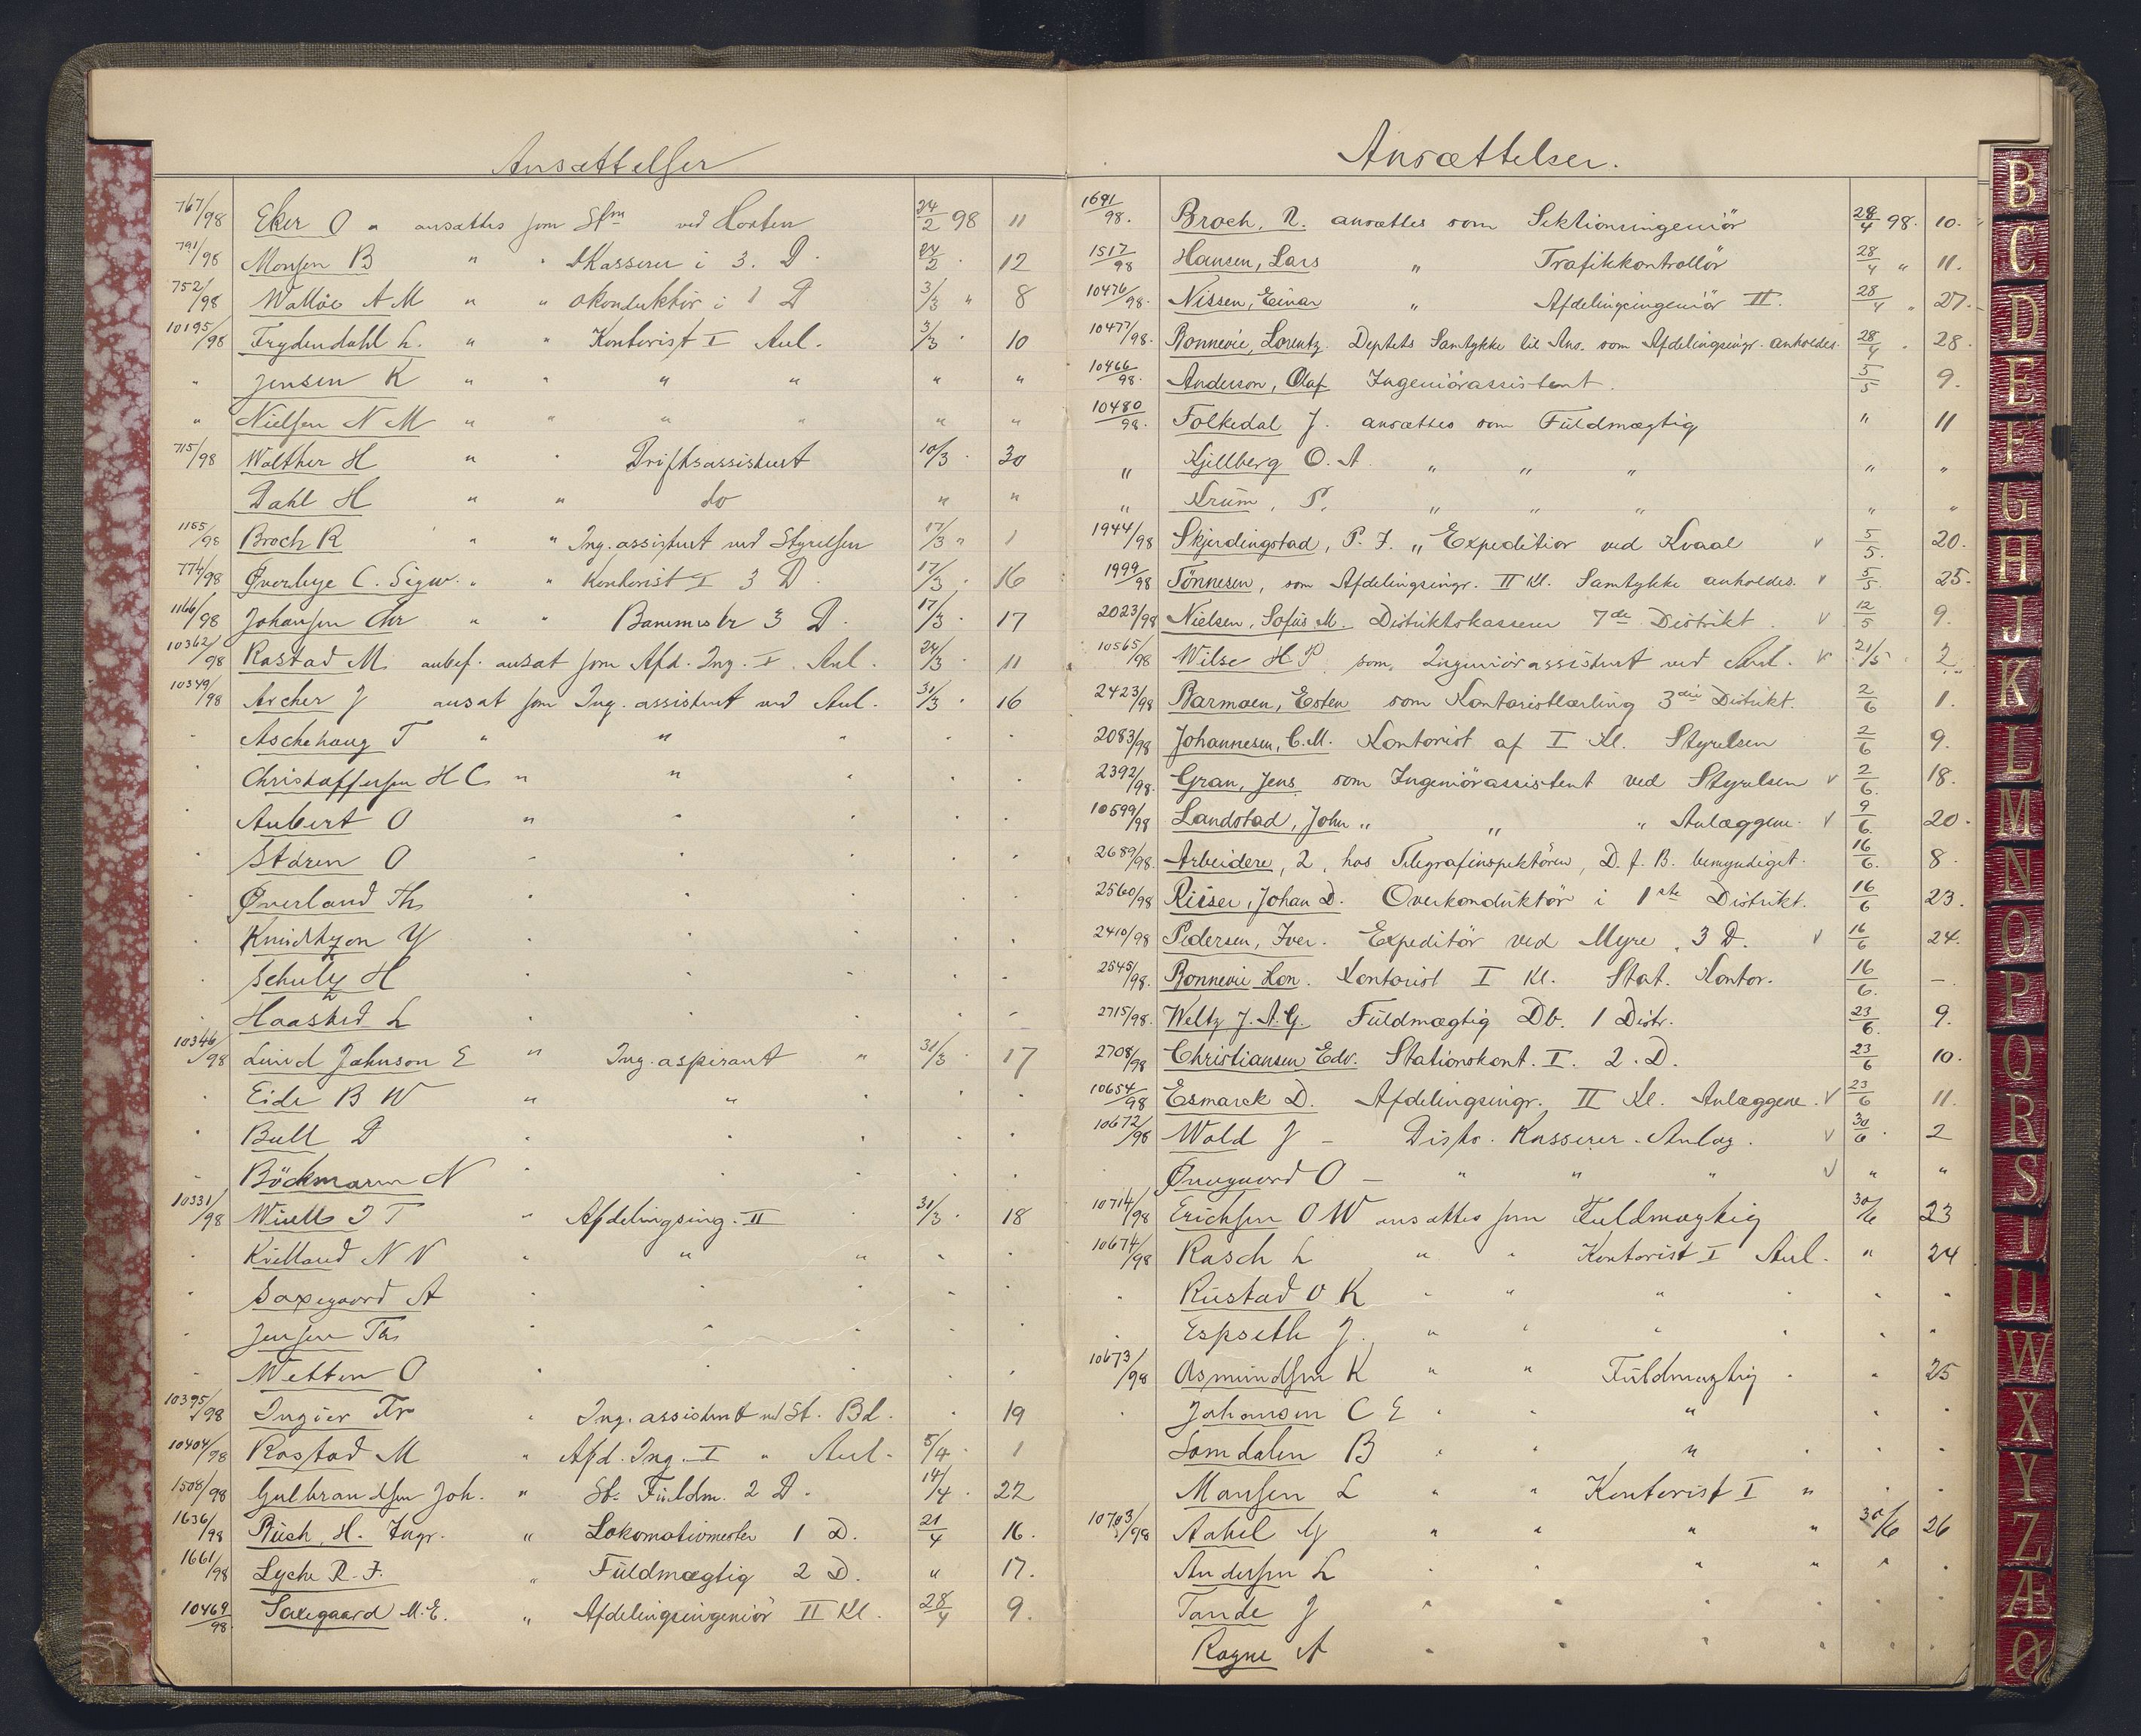 Ansættelser
767/98 Eker O " ansættes som Stm ved Horten 24/2 98 11
791/98 Monsen B " " DKasserer i 3. D. 24/2 " 12
752/98 Walløe A M " " Okonduktör i 1 D 3/3 " 8
10195/98 Frydendahl L. " " Kontorist I Anl. 3/3 " 10
" Jensen K " " " " " "
" Nielsen N M " " " " " "
715/98 Walther H " " Driftsassistent 10/3 " 30
Dahl H " " do " "
1165/98 Broch R " " Ing. assistent ved Styrelsen 17/3 " 1
774/98 Øverbye C. Sigw. " " Kontorist I 3 D. 17/3 " 16
1166/98 Johansen Chr " " Banemester 3 D. 17/3 " 17
10362/98 Rastad M. anbef. ansat som Afd. Ing. I. Anl. 24/3 " 11
10349/98 Archer J ansat som Ing. assistent ved Anl. 31/3 " 16
" Aschehoug T " " " " "
" Christoffersen H C " " " " "
" Aubert O " " " " "
" Stören O " " " " "
" Øverland Th " " " " "
" Knudtzon Y " " " " "
" Schulz H " " " " "
" Haasted L " " " " "
10346/98 Lund Johnson E " Ing. aspirant " 31/3 " 17
" Eide B W " " " "
" Bull D " " " " "
" Böckmann N " " " " "
10331/98 Wiull J T " Afdelingsing. II " 31/3 " 18
" Kielland N N " " " " "
" Saxegaard A " " " " "
" Jensen Th " " " " "
" Wetten O " " " " "
10395/98 Ingier Fr " Ing. assistent ved St. Bd. " 19
10404/98 Rastad M " Afd. Ing. I " Anl. 5/4 " 1
1508/98 Gulbrandsen Joh. " St. Fuldm. 2 D. 14/4 " 22
1636/98 Büch, H. Ingr. " Lokomotivmester 1 D. 21/4 16.
1661/98 Lyche R. F. " Füldmægtig 2 D. " 17.
10469/98 Saxegaard M. E. " Afdelingsingeniör II Kl. 28/4 9.
Ansættelser.
1691/98. Broch, R. ansættes som Sektionsingeniör 28/4 98. 10.
1517/98 Hansen, Lars " Trafikkontrollör 28/4 " 11.
10476/98. Nissen, Einar " Afdelingsingeniör II. 28/4 " 27.
10477/98. Bonnevie, Lorentz Deptets Samtykke til Ans. som Afdelingsingr. anholdes. 28/4 " 28.
10466/98. Anderson, Olaf Ingeniörassistent. 5/5 9.
10480/98. Folkedal J. ansættes som Füldmægtig " 11
" Kjellberg O. A. " " " " "
" Krüm, P. " " " " "
1944/98 Skjerdingstad, P. J. " Expeditior ved Kvaal v 5/5. 20.
1999/98 Tönnesen, som Afdelingsingr. II Kl. Samtykke anholdes. v 5/5. 25.
2023/98 Nielsen, Sofüs M. Distriktskasserer 7de Distrikt. v 12/5 9.
10565/98 Wilse H P som Ingeniörassistent ved Anl. v 21/5 " 2
2423/98 Barmoen, Esten som Kontoristlærling 3die Distrikt. 2/6 1.
2083/98 Johannesen, C. M. Kontorist af I Kl. Styrelsen 2/6 9.
2392/98. Gran, Jens som Ingeniörassistent ved Styrelsen v 2/6. 18.
10599/98 Landstad, John " " " Anlæggene. v 9/6. 20.
2689/98. Arbeidere, 2, hos Telegrafinspektören, D. f. B. bemyndiget. 16/6. 8.
2560/98 Riiser, Johan D. Overkondüktör i 1ste Distrikt. 16/6 23.
2410/98 Pedersen, Iver. Expeditör ved Myre, 3 D. v 16/6 24.
2545/98. Bonnevie Hon. Kontorist I Kl. Stat. Kontor. 16/6. -
2715/98. Weltz J. A. G. Füldmægtig Db. 1 Distr. 23/6. 9.
2708/98 Christiansen Edv. Stationskont. I. 2. D. 23/6 10.
10654/98 Esmarck D. Afdelingsingr. II Kl. Anlæggene. v 23/6 11.
10672/98 Wold J - Distr. Kasserer. Anlæg. v 30/6 " 2
Øvregaard O - " " " v " "
10714/98 Erichsen O W ansættes som Fuldmægtig 30/6 23
10674/98 Rasch L " " Kontorist I Anl. " 24
" Rüstad O K " " " " " "
" Espseth J. " " " " " "
10673/98 Asmundsen K " " Füldmægtig " " 25
" Johansen C E " " " " "
Somdalen B " " " " " "
Monsen L " " Kontorist I " " "
10703/98 Aabel G " " " " 30/6 26
Andersen L " " " " " "
Tande J " " " " " "
Rogne A " " " " " "
B
C
D
E
F
G
H
J
K
L
M
N
O
P
Q
R
S
T
U
W
X
Y
Z
Æ
Ø